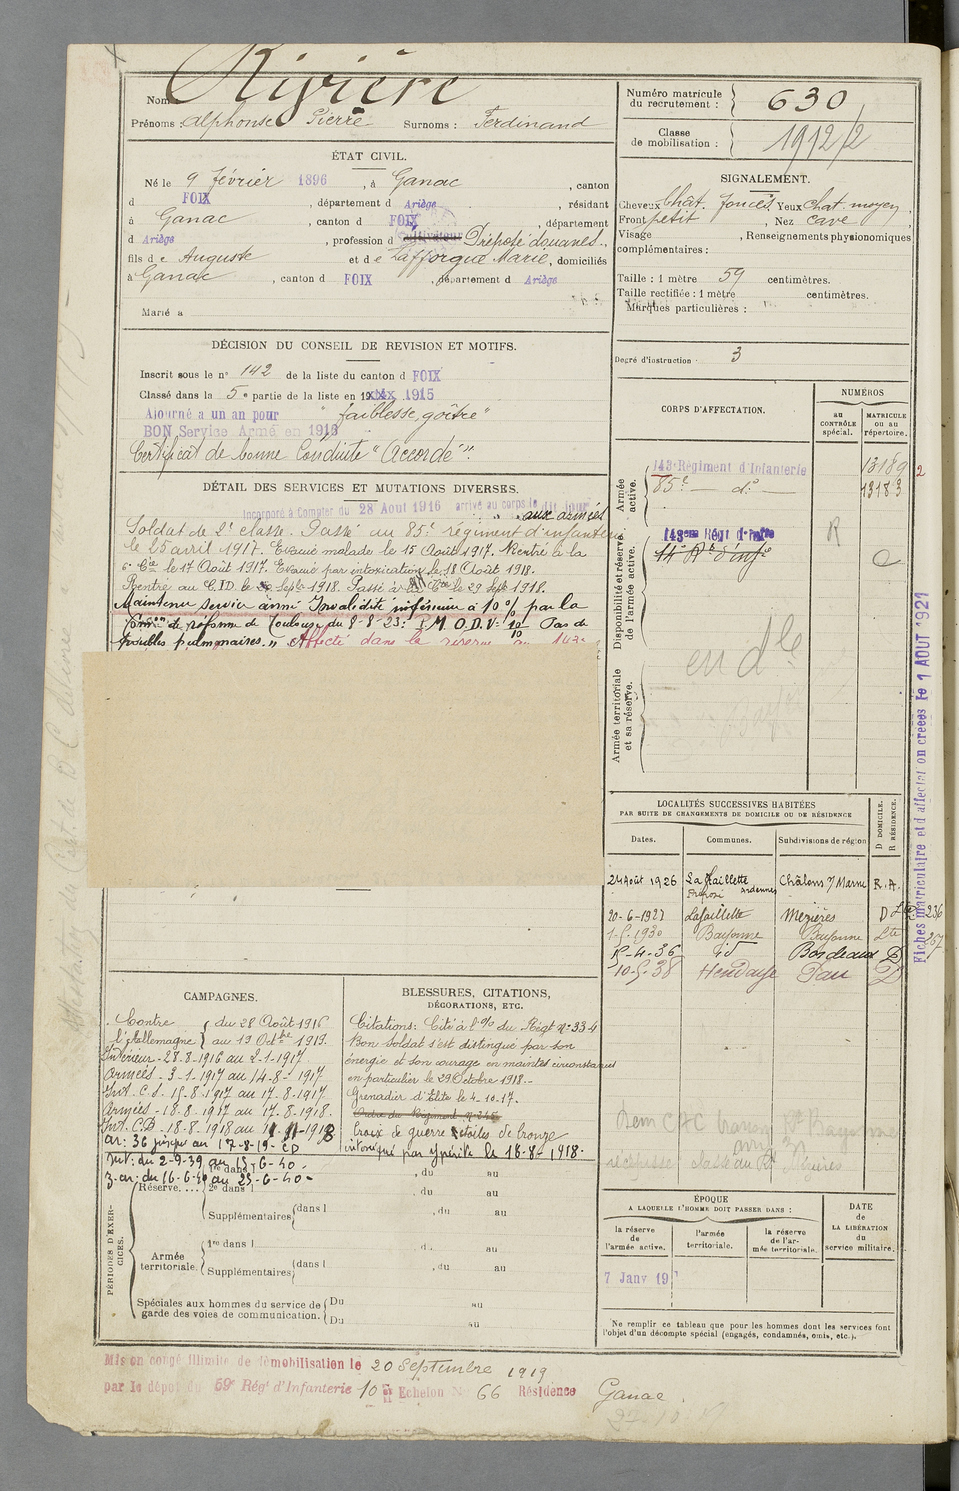 Nom Rivière
Prénoms : Alphonse Pierre Surnoms : Ferdinand
Numéro matricule du recrutement : 630
Classe de mobilisation : 1912/2
ÉTAT CIVIL.
Né le 9 février 1896, à Ganac, canton
d FOIX, département d Ariège, résidant
à Ganac, canton d FOIX, département
d Ariège, profession d cultivateur Préposé douanes,
fils de Auguste et de Lafforgue Marie, domiciliés
à Ganac, canton d FOIX, département d Ariège
Marié à
SIGNALEMENT.
Cheveux chât. foncés Yeux chat. moyen,
Front petit, Nez cave,
Visage , Renseignements physionomiques
complémentaires :
Taille : 1 mètre 59 centimètres.
Taille rectifiée : 1 mètre centimètres.
Marques particulières :
Degré d'instruction : 3
DÉCISION DU CONSEIL DE REVISION ET MOTIFS.
Inscrit sous le n° 142 de la liste du canton d FOIX
Classé dans la 5e partie de la liste en 1915
Ajourné à un an pour "faiblesse, goître"
BON Service Armé, en 1916
Certificat de bonne Conduite "Accordé".
DÉTAIL DES SERVICES ET MUTATIONS DIVERSES.
Incorporé à Compter du 28 Aout 1916 arrivé au corps le dit jour
aux armées
Soldat de 2e classe. Passé au 85e régiment d'infanterie
le 25 avril 1917. Evacué malade le 15 Août 1917. Rentré à la
6e Cie le 17 Août 1917. Evacué par intoxication le 18 Août 1918.
Rentré au C.I.D. le Septe 1918. Passé à Cie le 29 Septe 1918.
Maintenu service armé Invalidité inférieure à 10 % par la
Comon de réforme de Toulouse du 8-8-23: P.M O.D.V= 10/10 Pas de
troubles pulmonaires." Affecté dans la réserve au 143e
CORPS D'AFFECTATION.
NUMÉROS
au CONTRÔLE spécial.
MATRICULE ou au répertoire.
Armée active.
143e Régiment d'Infanterie 13189
85e — do — 13183
2
Disponibilité et réserve de l'armée active.
143eme Régt d'Infie R
C
en dle
Armée territoriale et sa réserve.
Fiches matriculaire et d'affectation créées le 1 AOUT 1921
LOCALITÉS SUCCESSIVES HABITÉES
PAR SUITE DE CHANGEMENTS DE DOMICILE OU DE RÉSIDENCE
Dates. Communes. Subdivisions de région D DOMICILE. R RÉSIDENCE.
24 Août 1926 La Haillette Ardennes Châlons s/ Marne R.A.
20-6-1927 Lafaillette Mézières D 236
1-5-1930 Bayonne Bayonne 267
15-4-36 id Bordeaux D
10-5-38 Hendaye Pau D
CAMPAGNES.
Contre l'Allemagne { du 28 Août 1916
au 19 Octbre 1919.
Intérieur - 28-8-1916 au 2-1-1917
Armées - 3-1-1917 au 14-8-1917
Int. C.S. 15-8-1917 au 17-8-1917
Armées - 18-8-1917 au 17-8-1918.
Int. C.B - 18-8-1918 au 11-11-1918
Int: du 2-9-39 au 15-6-40-
z. ar: du 16-6-40 au 25-6-40-
BLESSURES, CITATIONS,
DÉCORATIONS, ETC.
Citations: Cité à l'O/ du Régt n° 334
Bon Soldat s'est distingué par son
énergie et son courage en maintes circonstances
en particulier le 29 Octobre 1918.-
Grenadier d'Elite le 4-10-17.
Croix de guerre étoile de bronze
intoxiqué par ypérite le 18-8-1918.
PÉRIODES D'EXERCICES.
Réserve.... 1re dans l , du au
2e dans l , du au
Supplémentaires dans l , du au
Armée territoriale. 1re dans l du au
Supplémentaires dans l , du au
Spéciales aux hommes du service de garde des voies de communication. Du au
Du au
ÉPOQUE
A LAQUELLE L'HOMME DOIT PASSER DANS :
la réserve de l'armée active.
l'armée territoriale.
la réserve de l'armée territoriale.
DATE de LA LIBÉRATION du service militaire.
7 Janv 19
Ne remplir ce tableau que pour les hommes dont les services font
l'objet d'un décompte spécial (engagés, condamnés, omis, etc.).
Mis en congé illimité de démobilisation le 20 Septembre 1919
par le dépôt du 59e Régt d'Infanterie 10e Echelon No 66 Résidence Ganac